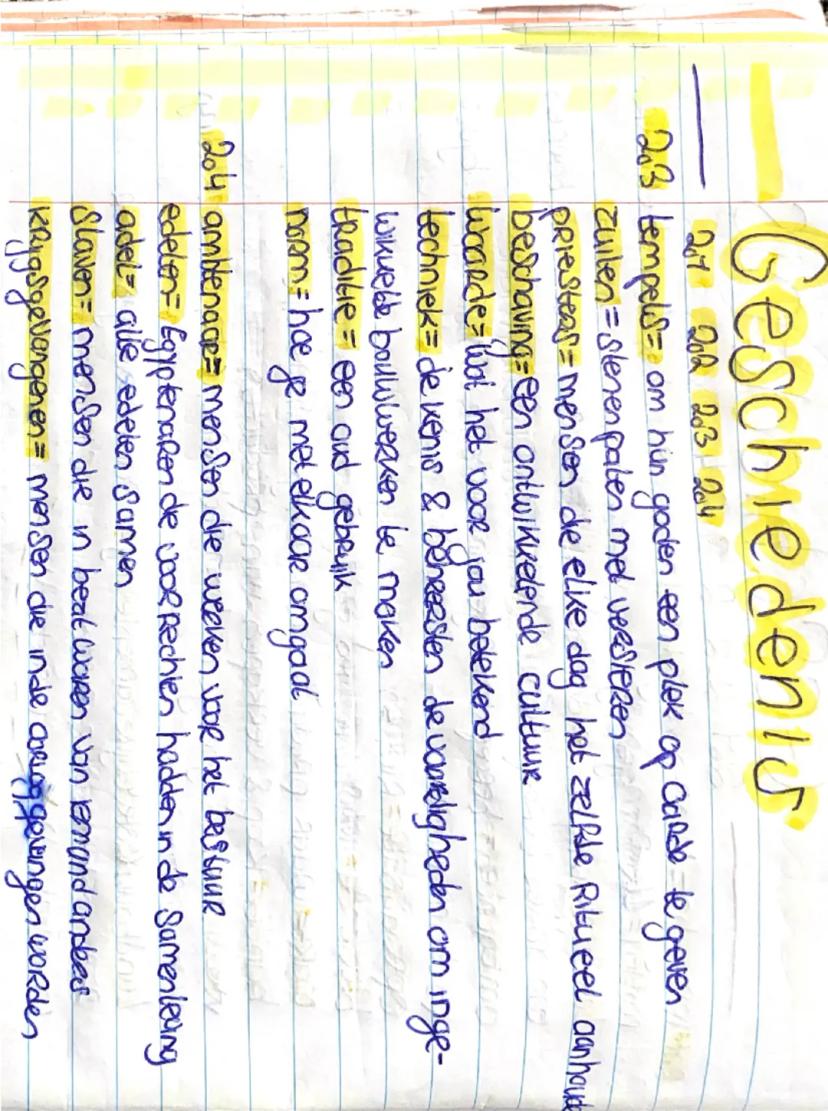 Geschiedenis
2.1 2.2 2.3 2.4
2.3 tempels= om hun goden een plek op aarde te geven
zuilen = stenen palen met versieren
priesters= mensen die elke dag het zelfde Ritueel aanhoud
beschaving= een ontwikkelende cultuur
waarde= wat het voor jou betekend
techniek= de kenis & beheersten de vaardigheden om inge-
wikkelde bouwwerken te maken
traditie = een oud gebruik
norm= hoe je met elkaar omgaat
2.4 ambtenaar= mensen die werken voor het bestuur
edelen= Egyptenaren de voorrechten hadden in de samenleving
adel= alle edelen samen
slaven= mensen die in bezit waren van iemand anders
krijgsgevangenen= mensen die in de oorlog gevangen worden